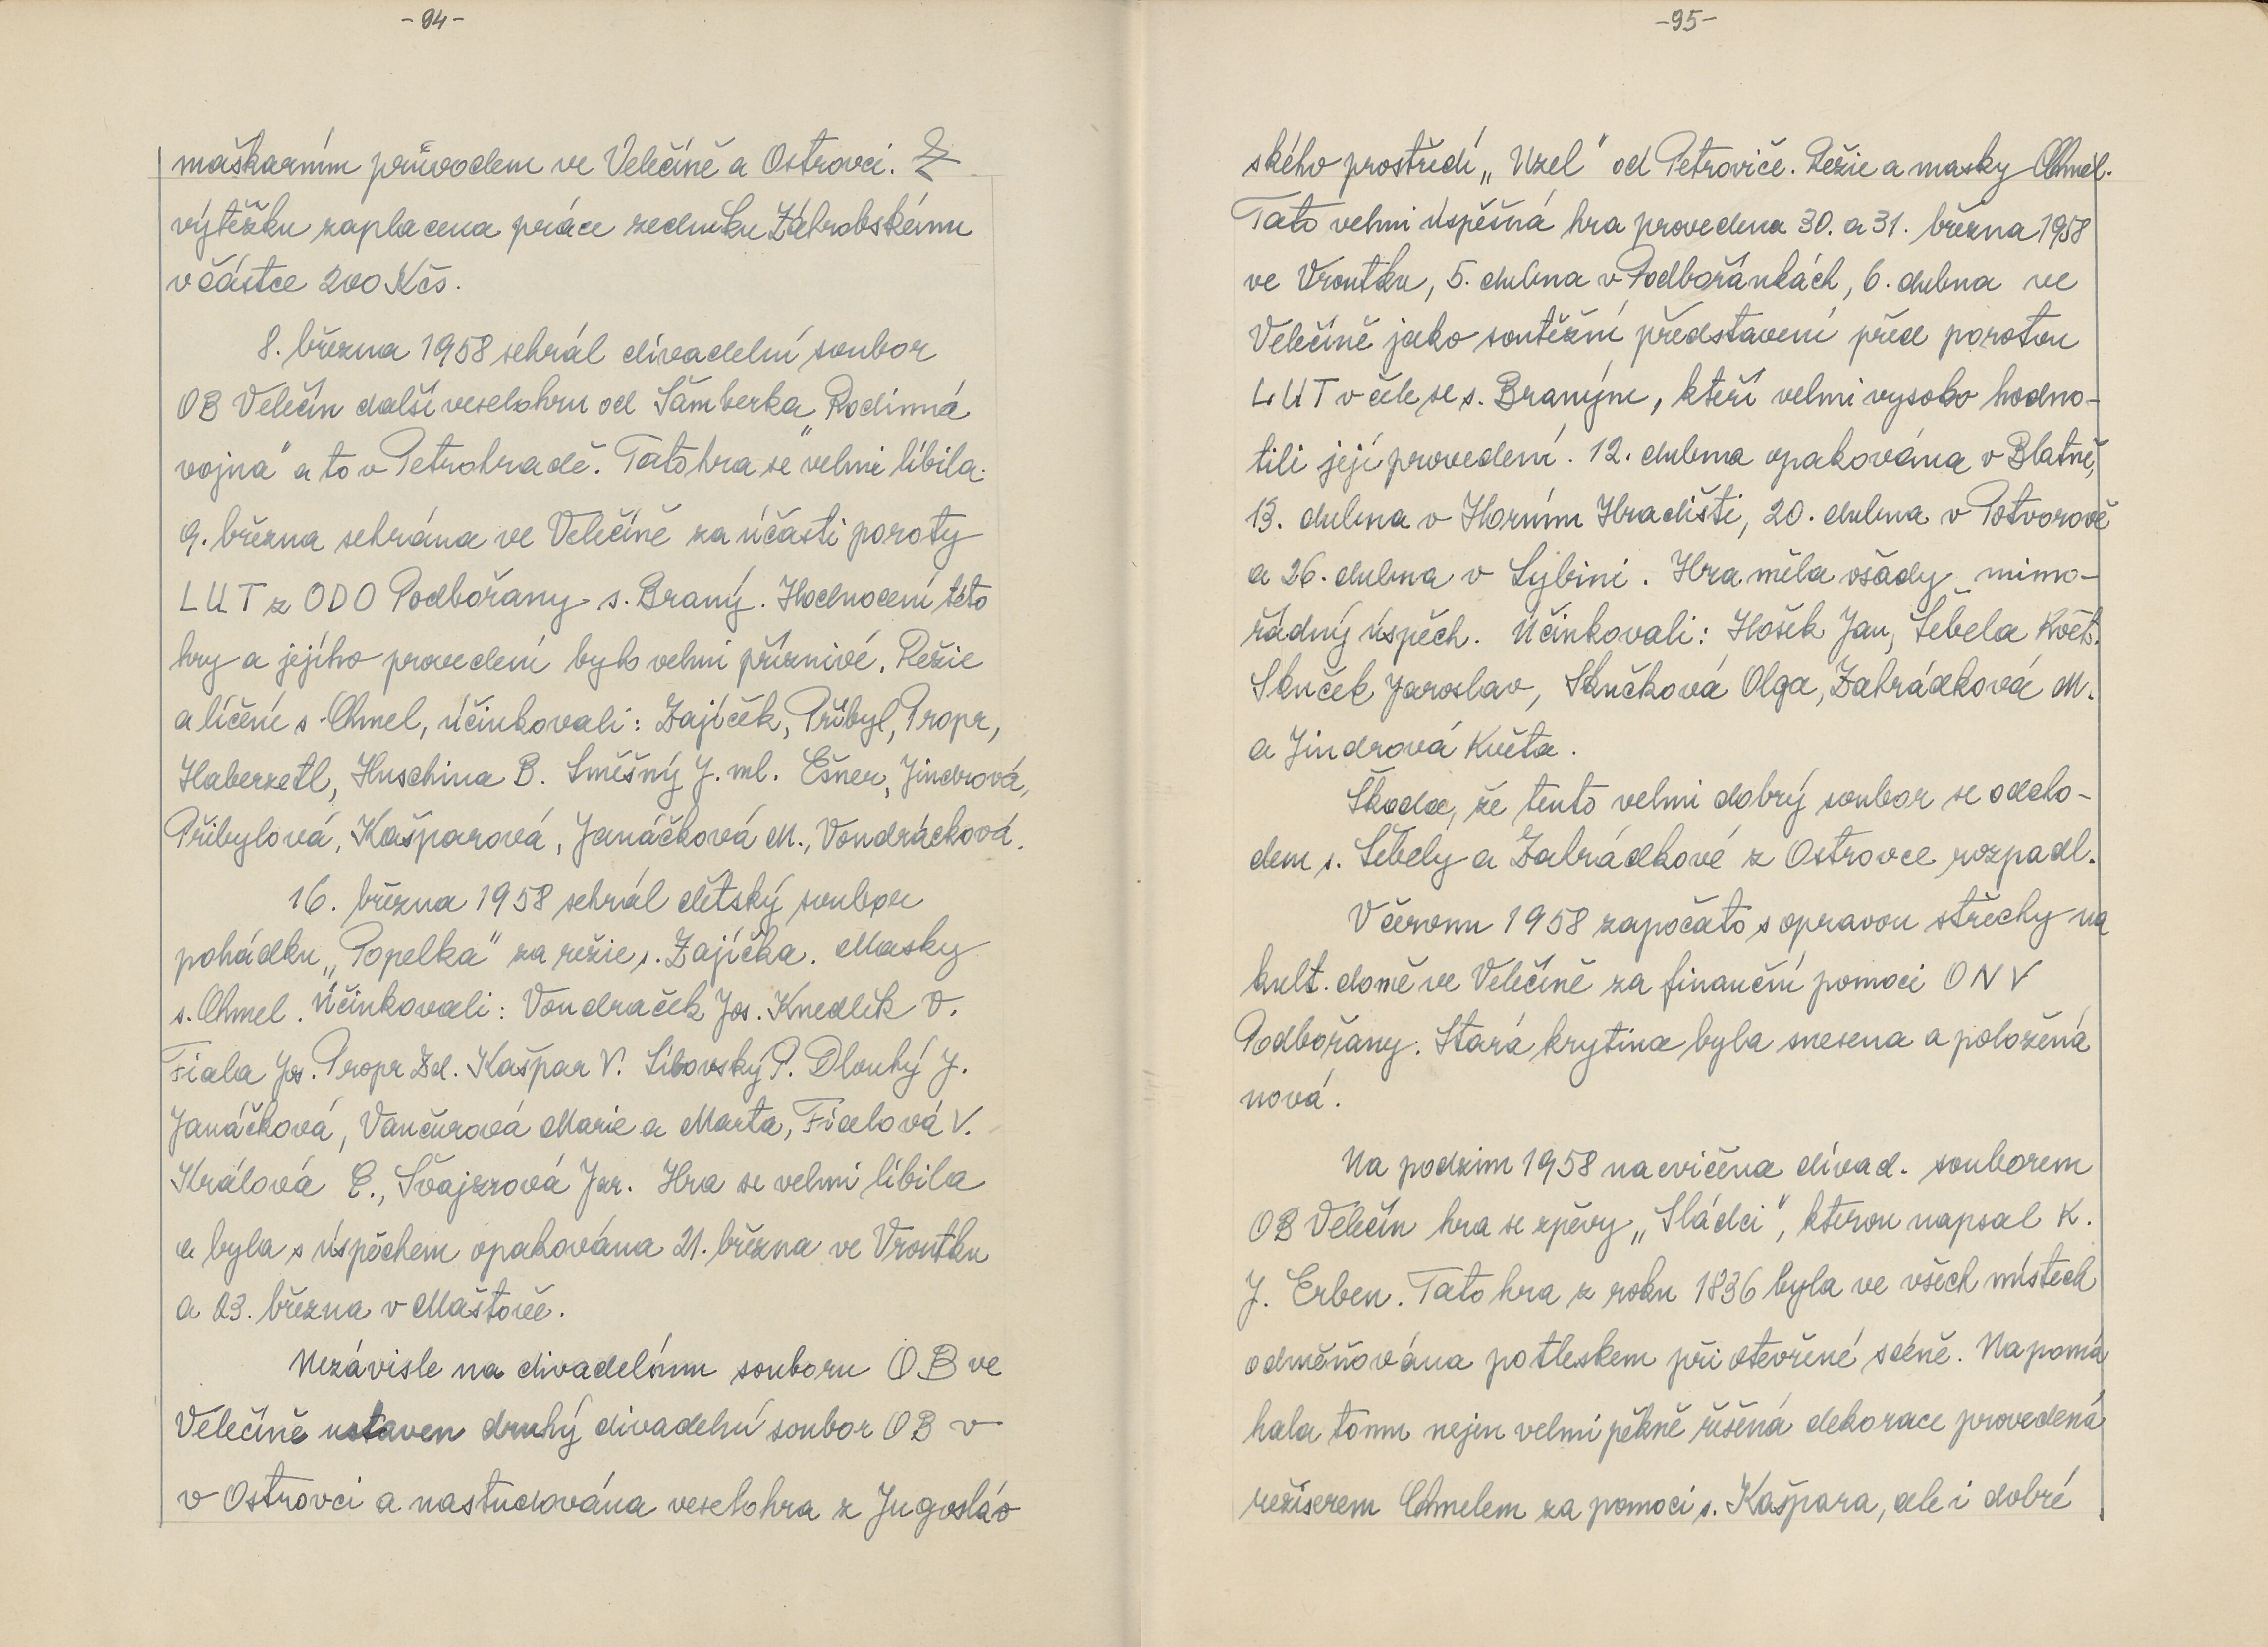 -94-
maškarním průvodem ve Velečíně a Ostrovci. Z
výtěžku zaplacena práce zedníku Záhrobskému
v částce 200 Kčs.
8. března 1958 sehrál divadelní soubor
OB Velečín další veselohru od Šamberka „Rodinná
vojna" a to v Petrohradě. Tato hra se velmi líbila.
9. března sehrána ve Velečíně za účasti poroty
LUT z ODO Podbořany s. Braný. Hodnocení této
hry a jejího provedení bylo velmi příznivé. Režie
a líčení s. Chmel, účinkovali: Zajíček, Přibyl, Propr,
Haberzetl, Huschina B. Směšný J. ml. Ešner, Jindrová,
Přibylová, Kašparová, Janáčková M., Vondráčková.
16. března 1958 sehrál dětský soubor
pohádku „Popelka" za režie s. Zajíčka. Masky
s. Chmel. Účinkovali: Vondraček Jos. Knedlík V.
Fiala Jos. Propr Zd. Kašpar V. Libovský P. Dlouhý J.
Janáčková, Vančurová Marie a Marta, Fialová V.
Králová E., Švajzrová Jar. Hra se velmi líbila
a byla s úspěchem opakována 21. března ve Vroutku
a 23. března v Maštově.
Nezávisle na divadelním souboru OB ve
Velečíně ustaven druhý divadelní soubor OB v
v Ostrovci a nastudována veselohra z Jugosláv
-95-
ského prostředí „Uzel" od Petroviče. Režie a masky Chmel.
Tato velmi úspěšná hra provedena 30. a 31. března 1958
ve Vroutku, 5. dubna v Podbořánkách, 6. dubna ve
Velečíně jako soutěžní představení před porotou
LUT v čele se s. Braným, kteří velmi vysoko hodno-
tili její provedení. 12. dubna opakována v Blatně,
13. dubna v Horním Hradišti, 20. dubna v Potvorově
a 26. dubna v Lybini. Hra měla všady mimo-
řádný úspěch. Účinkovali: Hošek Jan, Šebela Květ.
Skuček Jaroslav, Skučková Olga, Zahrádková M.
a Jindrová Květa.
Škoda, že tento velmi dobrý soubor se odcho-
dem s. Šebely a Zahrádkové z Ostrovce rozpadl.
V červnu 1958 započato s opravou střechy na
kult. domě ve Velečíně za finanční pomoci ONV
Podbořany. Stará krytina byla snesena a položená
nová.
Na podzim 1958 nacvičena divad. souborem
OB Velečín hra se zpěvy „Sládci", kterou napsal K.
J. Erben. Tato hra z roku 1836 byla ve všech místech
odměňována potleskem při otevřené scéně. Napomá
hala tomu nejen velmi pěkně řešená dekorace provedená
režiserem Chmelem za pomoci s. Kašpara, ale i dobré